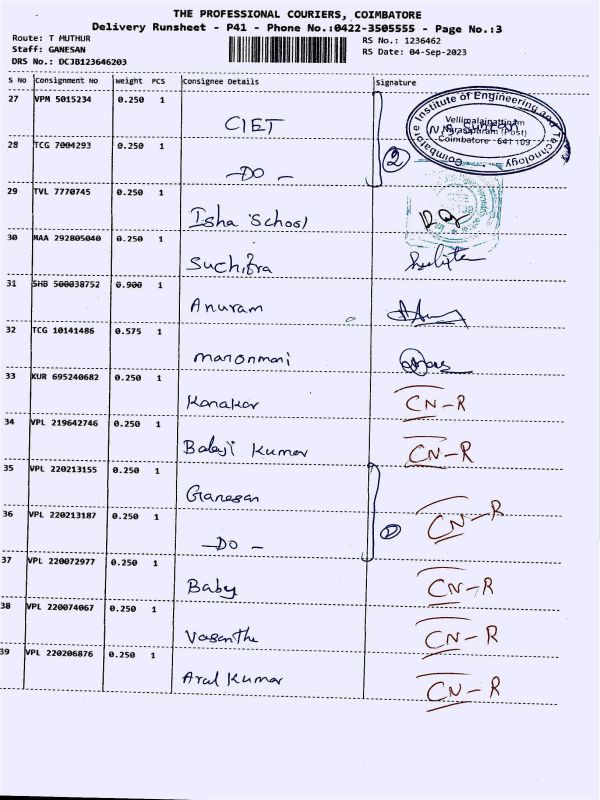 THE PROFESSIONAL COURIERS, COIMBATORE
Delivery Runsheet - P41 - Phone No.:0422-3505555 - Page No.:3
Route: T MUTHUR
Staff: GANESAN
DRS No.: DCJB123646203
RS No.: 1236462
RS Date: 04-Sep-2023
S No Consignment No Weight PCS Consignee Details Signature
27 VPM 5015234 0.250 1 CIET
Coimbatore Institute of Engineering and Technology
Vellimalaipattinam
Narasipuram (Post)
Coimbatore - 641 109
28 TCG 7004293 0.250 1 -DO- 2
29 TVL 7770745 0.250 1 Isha School
30 MAA 292805040 0.250 1 Suchitra
31 SHB 500038752 0.900 1 Anuram
32 TCG 10141486 0.575 1 manonmani
33 KUR 695240682 0.250 1 Kanakar CN-R
34 VPL 219642746 0.250 1 Balaji Kumar CN-R
35 VPL 220213155 0.250 1 Ganesan
36 VPL 220213187 0.250 1 -DO- CN-R
37 VPL 220072977 0.250 1 Baby CN-R
38 VPL 220074067 0.250 1 Vasantha CN-R
39 VPL 220206876 0.250 1 Arul Kumar CN-R